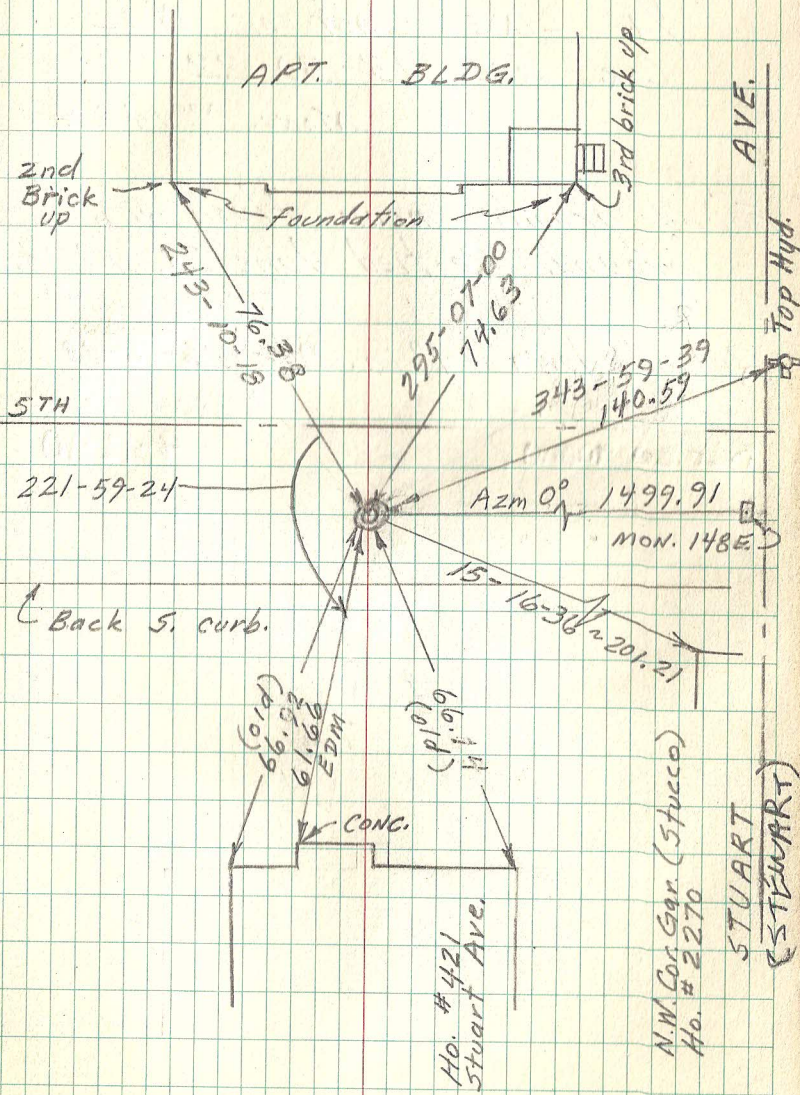 APT. BLDG.
3rd brick up
AVE.
2nd
Brick
up
foundation
Top Hyd.
243-10-18
76.38
295-07-00
74.63
343-59-39
140.59
5TH
221-59-24
Azm 0° 1499.91
MON. 148E.
15-16-36~201.21
Back S. curb.
(old)
66.92
61.66
EDM
(old)
71.99
CONC.
Ho. #421
Stuart Ave.
N.W. Cor. Gar. (Stucco)
Ho. #2270
STUART
(STEWART)